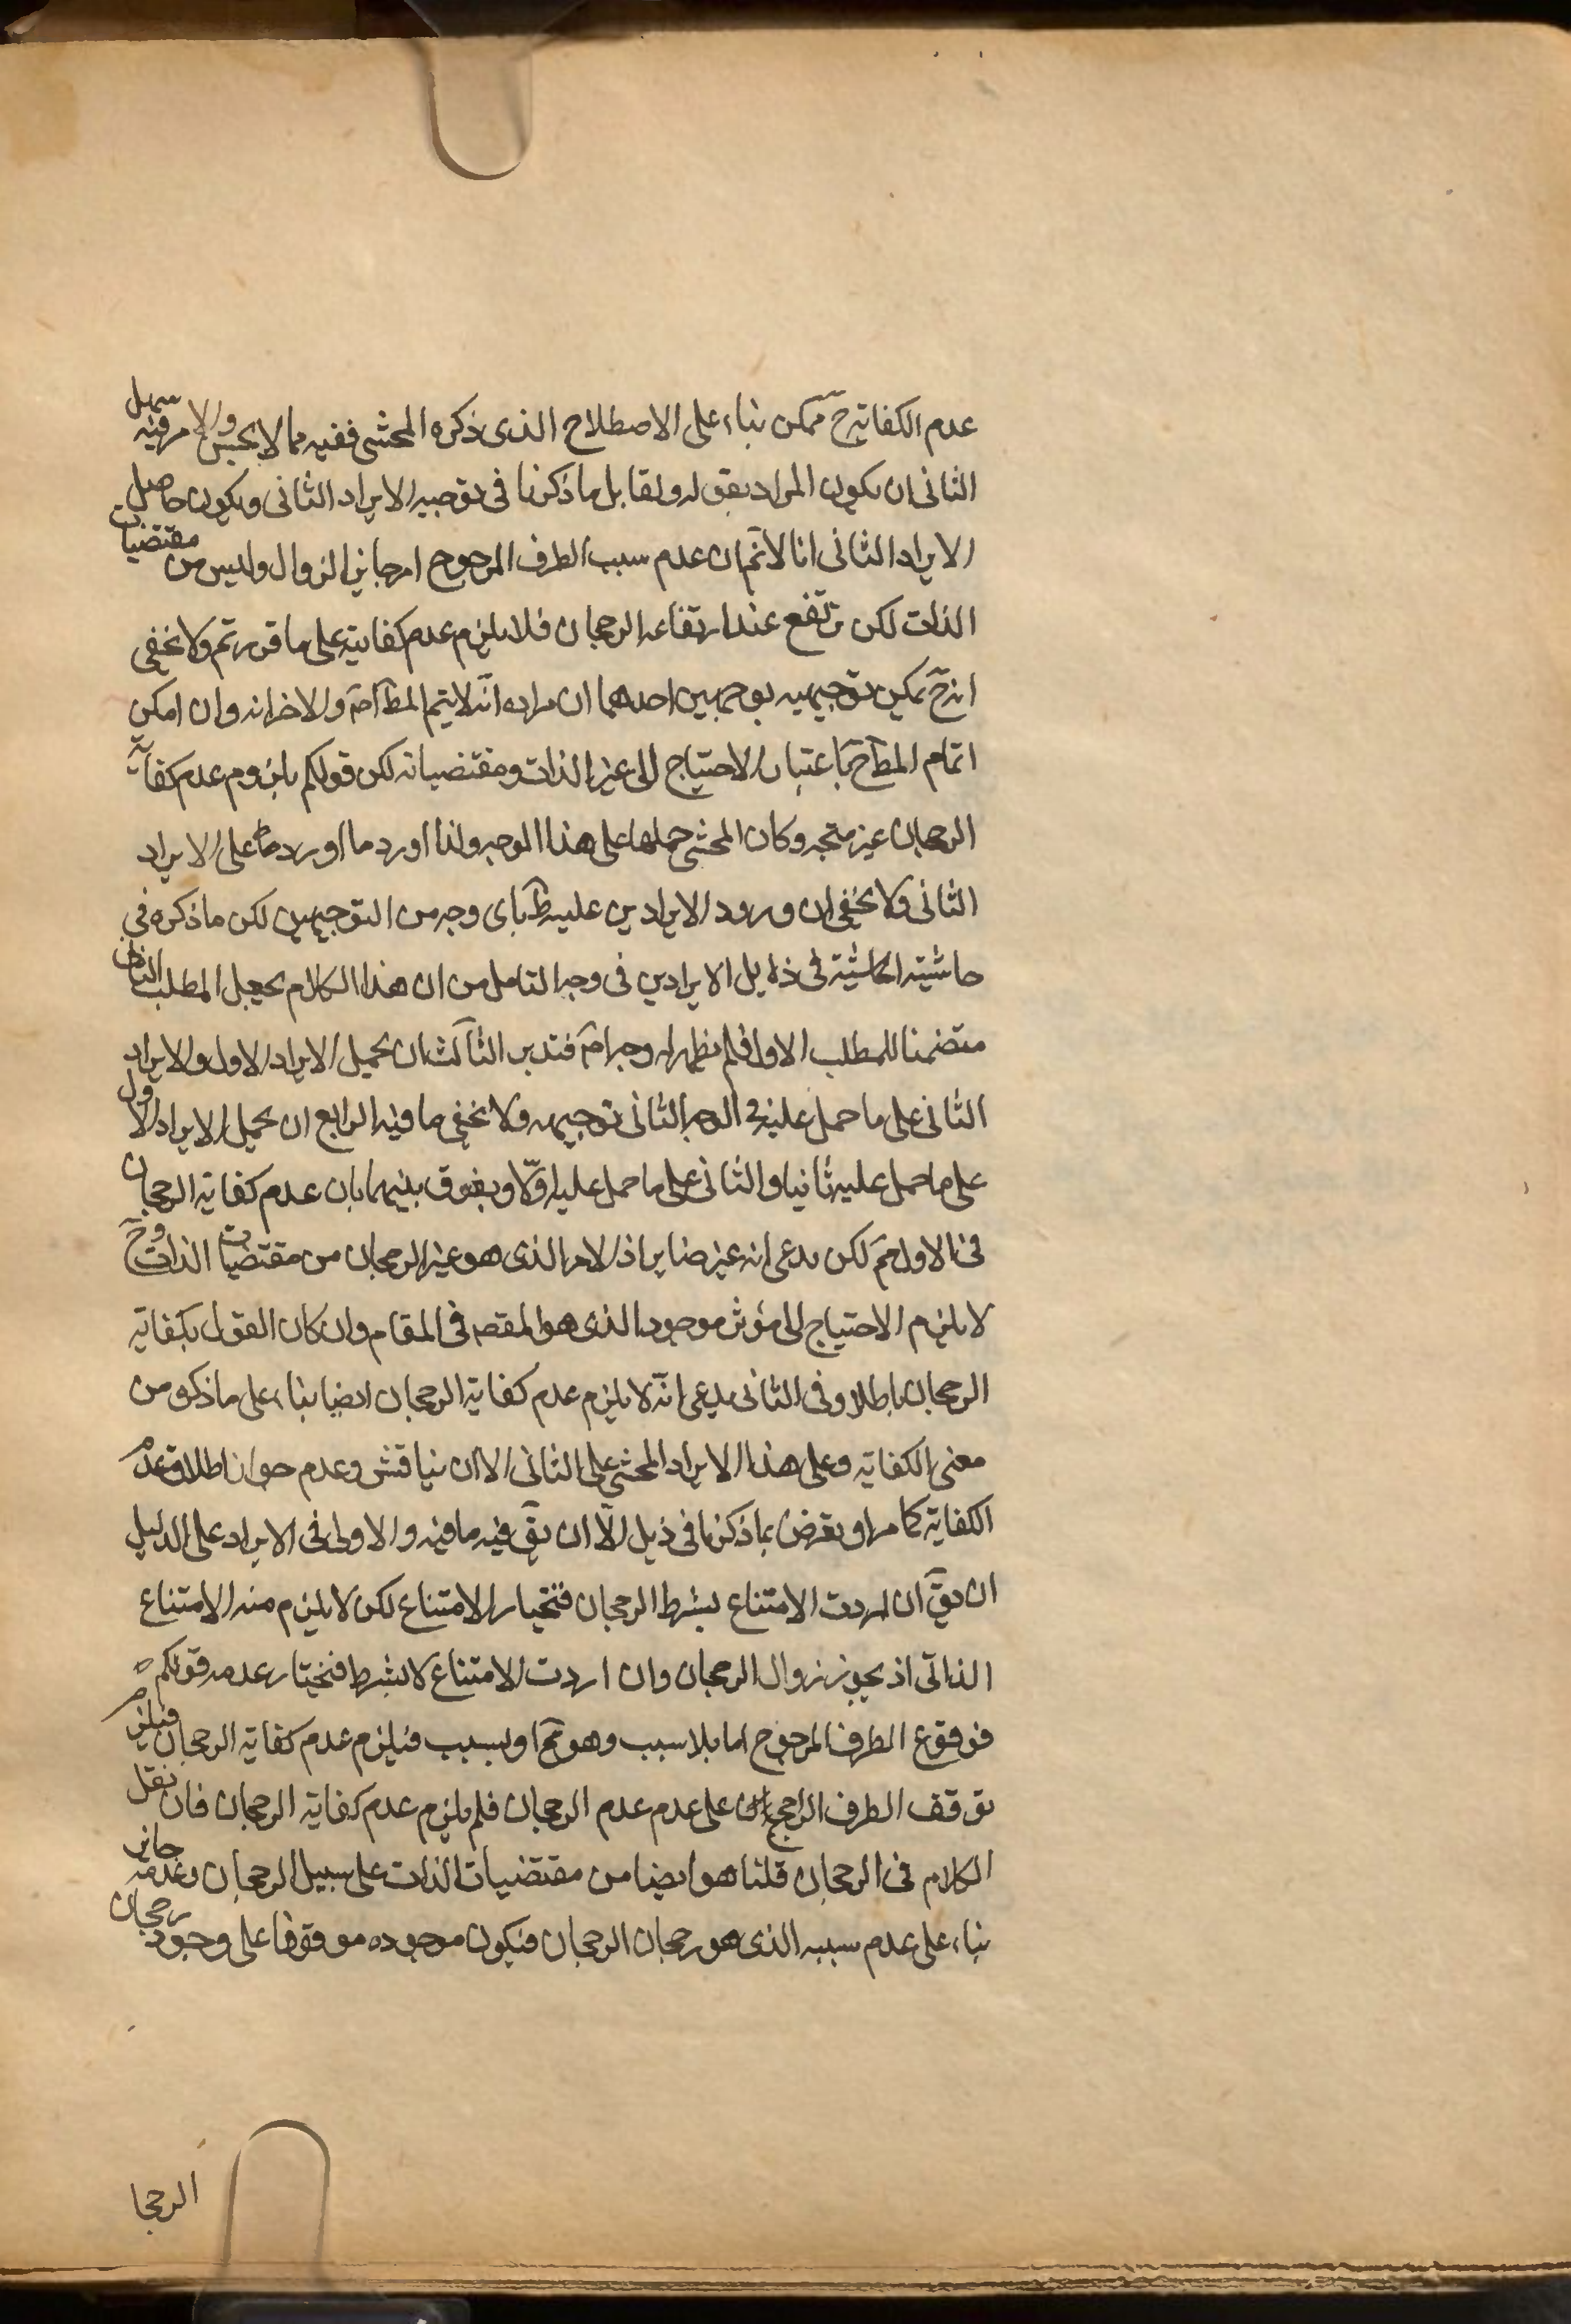 عدم الكفاية ح ممكن بناء على الاصطلاح الذى ذكره المحشى ففيه مما لا يحسن والامر فيه سهل
الثانى ان يكون المراد بقوله ولقابل ما ذكرنا فى توجيه الايراد الثانى ويكون حاصل
الايراد الثانى انا لانم ان عدم سبب الطرف المرجوح امر جايز الزوال وليس من مقتضيات
الذات لكن يرتفع عند ارتفاعه الرجحان فلا يلزم عدم كفايته على ما قررتم ولا يخفى
انه ح يمكن توجيهه بوجهين احدهما ان مراده انه لا يتم المط اصم والاخر انه وان امكن
اتمام المط ح باعتبار الاحتياج الى غير الذات ومقتضياته لكن قولكم بلزوم عدم كفاية
الرجحان غير متجه وكان المحشى حملها على هذا الوجه ولذا اورد ما اورده على الايراد
الثانى ولا يخفى ان ورود الايرادين عليه ظ باى وجه من التوجيهين لكن ما ذكره فى
حاشيته الحاشية فى ذيل الايرادين فى وجه التامل من ان هذا الكلام يجعل المطلب الثانى
متضمنا للمطلب الاول فلم يظهر له وجه اصم فتدبر الثالث ان يحمل الايراد الاول والايراد
الثانى على ما حمل عليه فى الوجه الثانى توجيهه ولا يخفى ما فيه الرابع ان يحمل الايراد الاول
على ما حمل عليه ثانيا والثانى على ما حمل عليه اولا ويفرق بينهما بان عدم كفاية الرجحان
فى الاول مم لكن يدعى انه غير ضاير اذ الامر الذى هو غير الرجحان من مقتضيات الذات وح
لا يلزم الاحتياج الى مؤثر موجود الذى هو المقصه فى المقام وان كان القول بكفاية
الرجحان باطلا وفى الثانى يدعى انه لا يلزم عدم كفاية الرجحان ايضا بناء على ما ذكر من
معنى الكفاية وعلى هذا الايراد المحشى على الثانى الا ان يناقش وعدم جواز اطلاق عدم
الكفاية كما مر او يعرض بما ذكرنا فى ذيل الا ان يق فيه ما فيه والاولى فى الايراد على الدليل
ان يق ان اردت الامتناع بشرط الرجحان فنختيار الامتناع لكن لا يلزم منه الامتناع
الذاتى اذ يجوز زوال الرجحان وان اردت الامتناع لا بشرط فنختار عدمه قولكم
فوقوع الطرف المرجوح اما بلا سبب وهو مح او بسبب فيلزم عدم كفاية الرجحان فيلزم
توقف الطرف الراجح على عدم عدم الرجحان فلم يلزم عدم كفاية الرجحان فان نقل
الكلام فى الرجحان قلنا هو ايضا من مقتضيات الذات على سبيل الرجحان وعدمه جايز
بناء على عدم سببه الذى هو رجحان الرجحان فيكون موجوده موقوفا على وجود رجحان
الرجحا